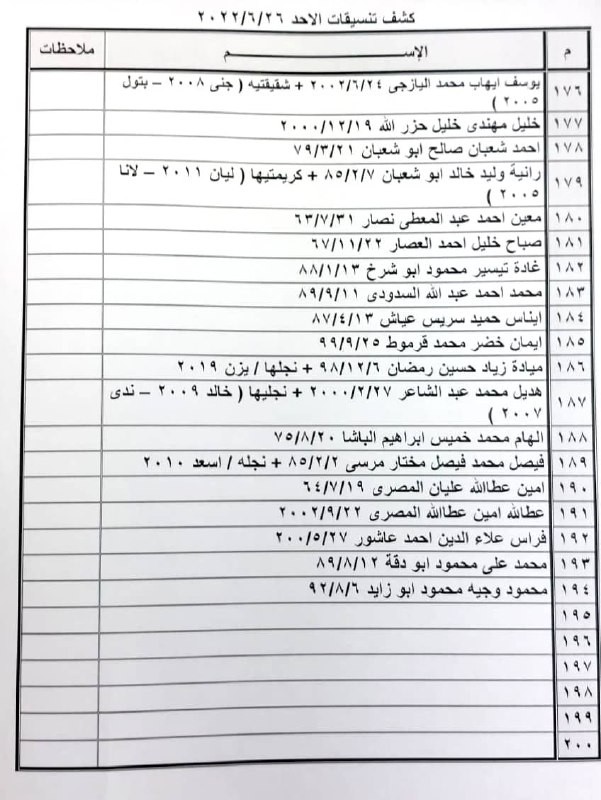 كشف تنسيقات الاحد ٢٠٢٢/٦/٢٦
م الإســـــم ملاحظات
١٧٦ يوسف ايهاب محمد اليازجى ٢٠٠٢/٦/٢٤ + شقيقتيه ( جنى ٢٠٠٨ – بتول
٢٠٠٥ )
١٧٧ خليل مهندى خليل حزر الله ٢٠٠٠/١٢/١٩
١٧٨ احمد شعبان صالح ابو شعبان ٧٩/٣/٢١
١٧٩ رانية وليد خالد ابو شعبان ٨٥/٢/٧ + كريمتيها ( ليان ٢٠١١ – لانا
٢٠٠٥ )
١٨٠ معين احمد عبد المعطى نصار ٦٣/٧/٣١
١٨١ صباح خليل احمد العصار ٦٧/١١/٢٢
١٨٢ غادة تيسير محمود ابو شرخ ٨٨/١/١٣
١٨٣ محمد احمد عبد الله السدودى ٨٩/٩/١١
١٨٤ ايناس حميد سريس عياش ٨٧/٤/١٣
١٨٥ ايمان خضر محمد قرموط ٩٩/٩/٢٥
١٨٦ ميادة زياد حسين رمضان ٩٨/١٢/٦ + نجلها / يزن ٢٠١٩
١٨٧ هديل محمد عبد الشاعر ٢٠٠٠/٢/٢٧ + نجليها ( خالد ٢٠٠٩ – ندى
٢٠٠٧ )
١٨٨ الهام محمد خميس ابراهيم الباشا ٧٥/٨/٢٠
١٨٩ فيصل محمد فيصل مختار مرسى ٨٥/٢/٢ + نجله / اسعد ٢٠١٠
١٩٠ امين عطاالله عليان المصرى ٦٤/٧/١٩
١٩١ عطالله امين عطاالله المصرى ٢٠٠٢/٩/٢٢
١٩٢ فراس علاء الدين احمد عاشور ٢٠٠/٥/٢٧
١٩٣ محمد على محمود ابو دقة ٨٩/٨/١٢
١٩٤ محمود وجيه محمود ابو زايد ٩٢/٨/٦
١٩٥
١٩٦
١٩٧
١٩٨
١٩٩
٢٠٠